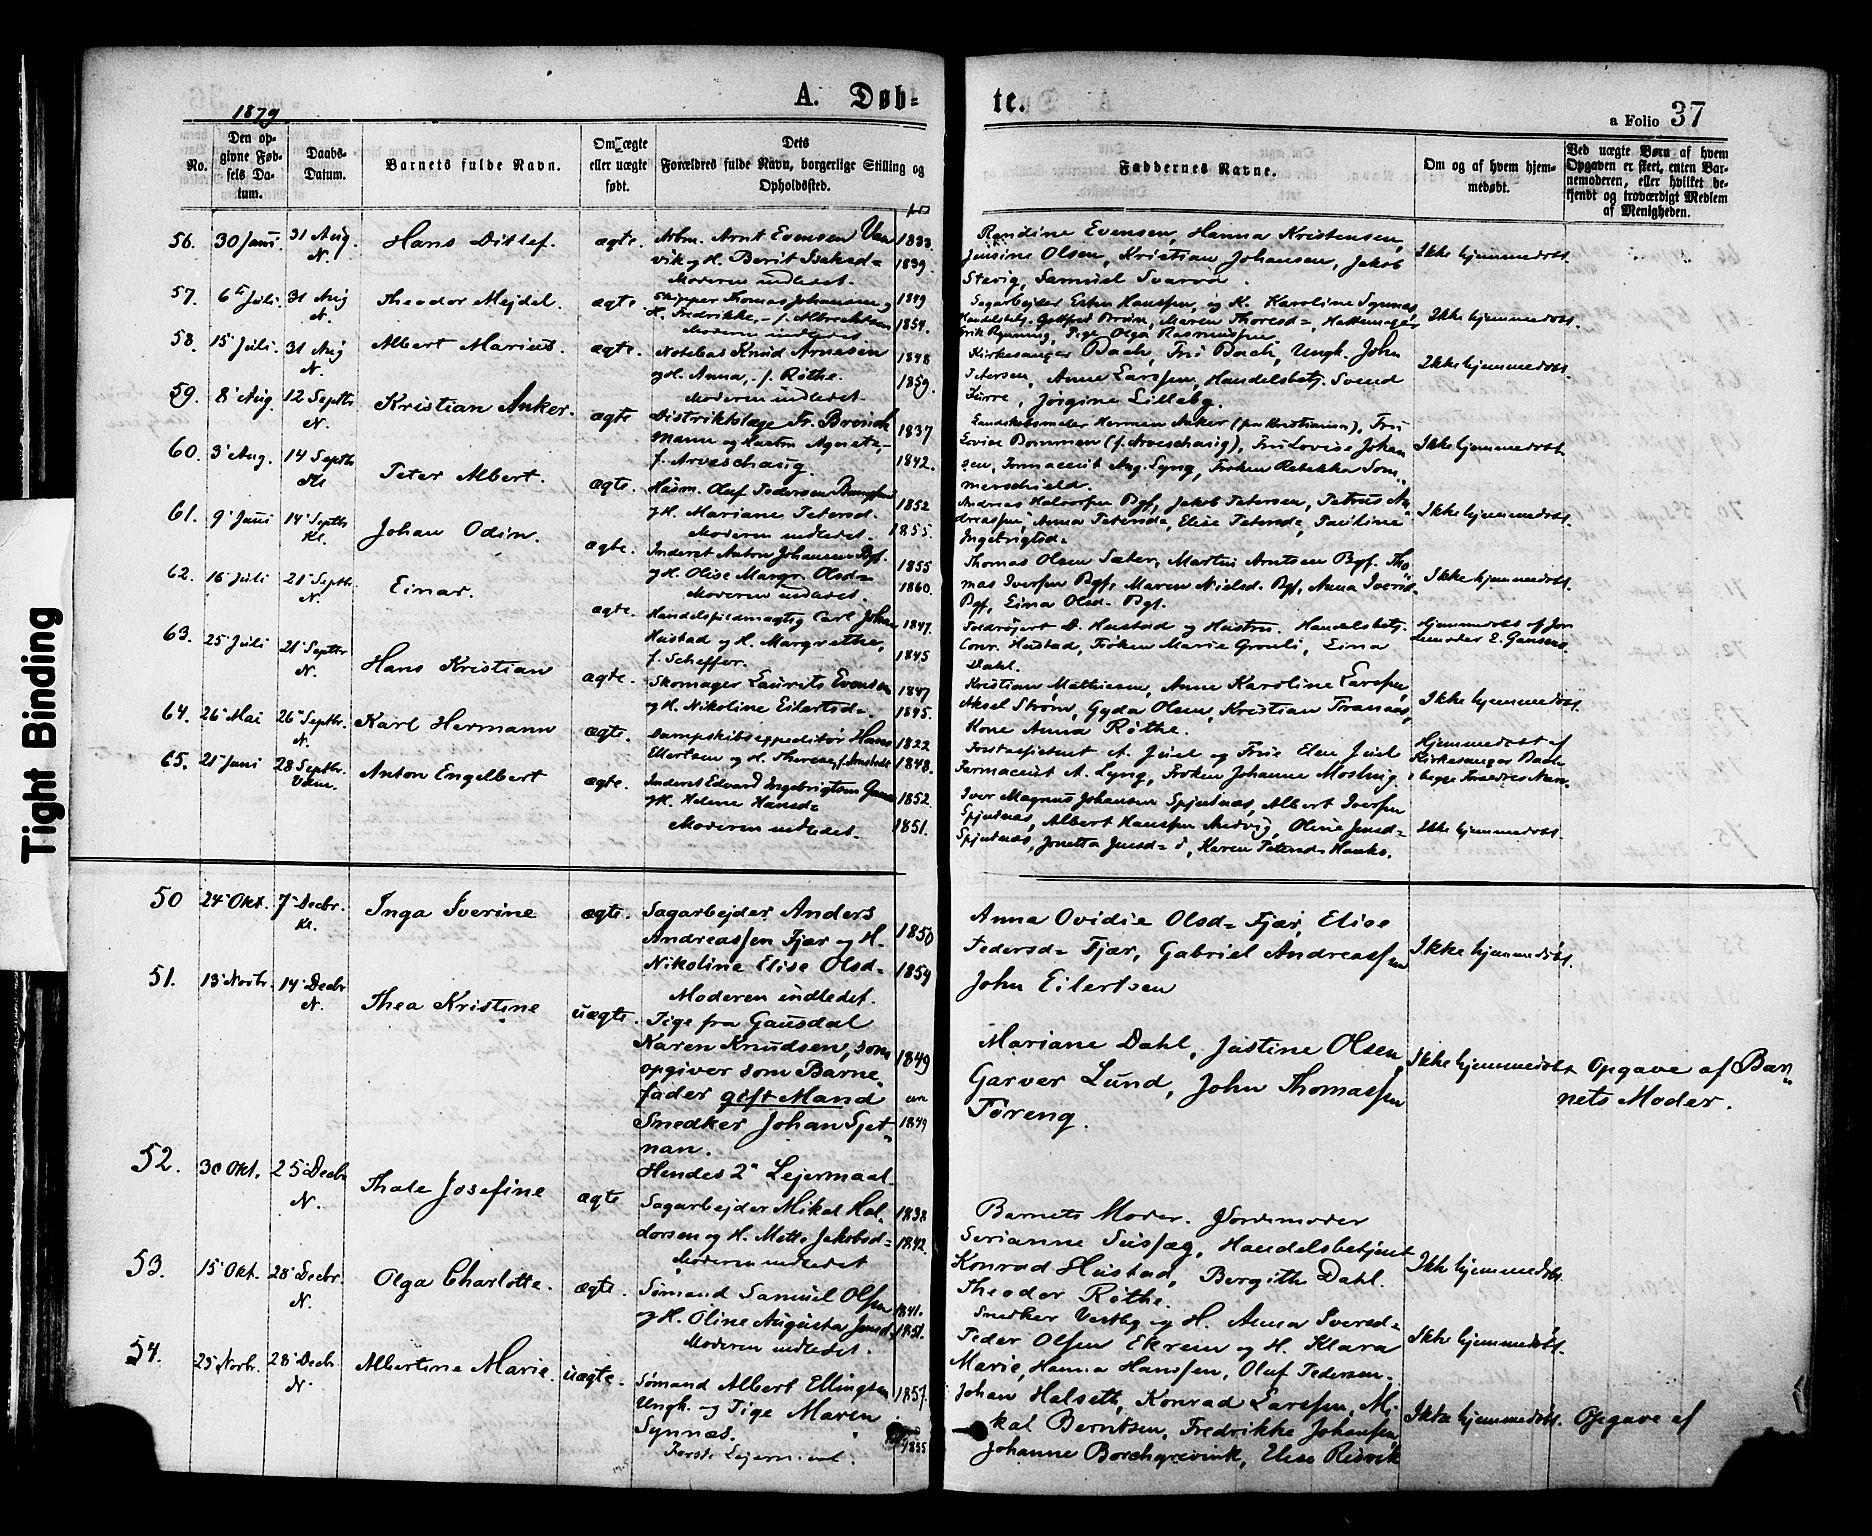 A. Døb-
te.
a Folio 37
1879
No.
Den op-
givne Fød-
sels Da-
tum.
Daabs-
Datum.
Barnets fulde Navn.
Om ægte
eller uægte
født.
Dets
Forældres fulde Navn, borgerlige Stilling og
Opholdssted.
Faddernes Navne.
Om og af hvem hjem-
medøbt.
Ved uægte Børn af hvem
Opgaven er skeet, enten Bar-
nemoderen, eller hvilket be-
kjendt og troværdigt Medlem
af Menigheden.
56. 30 Juni 31 Aug. N. Hans Ditlef. ægte. Arbm. Arnt Evensen Van
vik og H. Berit Isaksd= 1839.
Moderen indledet.
Randine Evensen, Hanna Kristensen,
Jensine Olsen, Kristian Johansen, Jakob
Stavig, Samuel Svarva.
Ikke hjemmedøbt.
57. 6te Juli 31 Aug N. Theodor Mejdel. ægte. Skipper Thomas Johansen og 1849
H. Fredrikke, f. Albrechtsen 1854.
Moderen indledet
Sagarbejder Ellen Hanssen, og K. Karoline Synnæs,
Handelsbetj. Gottfred Brun, Maren Thoresd=
Olga Rasmussen
Ikke hjemmedøbt.
58. 15 Juli. 31 Aug N. Albert Marius. ægte. Notebas Knud Arnesen 1848
og H. Anna, f. Røthe. 1859.
Moderen indledet.
Kirkesanger Bach, Fru Bach, Ungk. John
Petersen, Anne Larssen, Handelsbetj. Svend
Jørgine Lilleby.
Ikke hjemmedøbt.
59. 8 Aug. 12 Septbr N. Kristian Anker. ægte Distriktslæge Fr.
Mann og Hustru Agnete, 1837
1842.
Landskabsmaler Herman Anker (fra Kristiania), Fru
Lovise Bommen Fru Lovise Johan
sen, Farmaceut Aug. Lyng, Frøken Rebekka Som
merschield.
Ikke hjemmedøbt
60. 3 Aug. 14 Septbr Kl Peter Albert. ægte. Husm. Oluf Pedersen 1852
og H. Mariane Petersd. 1855.
Moderen indledet.
Andreas Halvorsen Bgf, Jakob Petersen, Petrus An
dreassen, Anna Petersd=, Elise Petersd=, Pauline
Ingebrigtsd=
Ikke hjemmedøbt.
61. 9 Juni 14 Septbr Kl. Johan Odin. ægte. Inderst Anton Johansen Bgf. 1855
og H. Olise Margr. Olsd= 1860.
Moderen indledet.
Thomas Olsen Sæter, Martin Arntsen Bgf. Tho
mas Iversen Bgf, Maren Nielsd. Bgf, Anna Iversd.
Bgf, Elina Olsd. Bgf.
Ikke hjemmedøbt.
62. 16 Juli 21 Septbr. N. Einar. ægte. Handelsfuldmægtig Carl Johan 1847.
Hustad og H. Margrethe, 1845
f. Scheffer.
D. Hustad og Hustru. Handelsbetj.
Conr. Hustad, Frøken Marie Gronli, Elina
Dahl.
Hjemmedøbt af Jor
demoder E.
63. 25 Juli 21 Septbr N. Hans Kristian ægte. Skomager Laurits Evensen 1847
og H. Nikoline Eilertsd= 1845.
Kristian Mathiesen, Anne Karoline Larssen,
Aksel Strøm, Gyda Olsen, Kristian Tranaas,
Kone Anna Røthe.
Ikke hjemmedøbt.
64. 26 Mai 26 Septbr. N. Karl Hermann ægte. Dampskibsexpeditør Hans 1822
Ellertsen og H. Therese, 1848.
A. Juel og Frue Elen Juel
Farmaceut A. Lyng, Frøken Johanne Mosling.
Hjemmedøbt af
Kirkesanger Bach
65. 21 Juni 28 Septbr. Anton Engelbert ægte. Inderst Edvard Ingebrigtsen 1852.
og H. Helene Hansd= 1851.
Moderen indledet.
Iver Magnus Johansen Spjutnæs, Albert Iversen
Spjutnæs, Albert Hanssen Andvig, Oline Jensd=
Spjutnæs, Jonetta Jensd= i, Karen Petersd=
Ikke hjemmedøbt.
50 24 Okt. 7 Decbr. Kl. Inga Iverine ægte. Sagarbejder Anders
Andreassen Fjær og H. 1850
Nikoline Elise Olsd= 1854
Moderen indledet.
Anna Ovidie Olsd= Fjær, Elise
Pedersd= Fjær, Gabriel Andreassen
John Eilertsen
Ikke hjemmedøbt.
51. 13 Novbr. 14 Decbr N. Thea Kristine uægte. Pige fra Gausdal
Karen Knudsen, som 1849
opgiver som Barne
fader gift Mand
Snedker Johan Sjet 1849
nan.
Hendes 2 Lejermaal
Mariane Dahl, Justine Olsen
Garver Lund, John Thomassen
Toreng.
Ikke hjemmedøbt
Opgave af Bar
nets Moder.
52. 30 Okt. 25 Decbr N. Thale Josefine ægte Sagarbejder Mikal Hal 1838
dorsen og H. Mette Jakobsd= 1842.
Moderen indledet
Barnets Moder. Jordemoder
Serianne Susæg, Handelsbetjent
Konrad Hustad, Bergithe Dahl.
Theodor Røthe.
Ikke hjemmedøbt.
53. 15 Okt. 28 Decbr. N. Olga Charlotte. ægte. Sømand Samuel Olsen 1841.
og H. Oline Augusta Jensd. 1851.
Moderen indledet.
Snedker Vestby og H. Anna Iversd=
Peder Olsen Ekrem og H. Klara
Marie, Hanna Hanssen, Oluf Pedersen.
Ikke hjemmedøbt.
54. 25 Novbr. 28 Decbr N. Albertine Marie. uægte. Sømand Albert Ellingsen 1857.
Ungk. og Pige Maren
Synnæs.
Første Lejermaal.
Johan Halseth, Konrad Larssen, Mi
kal Berntsen, Fredrikke Johansen,
Johanne Borchgrevink, Elise Risvik
Ikke hjemmedøbt.
Opgave af
Tight Binding